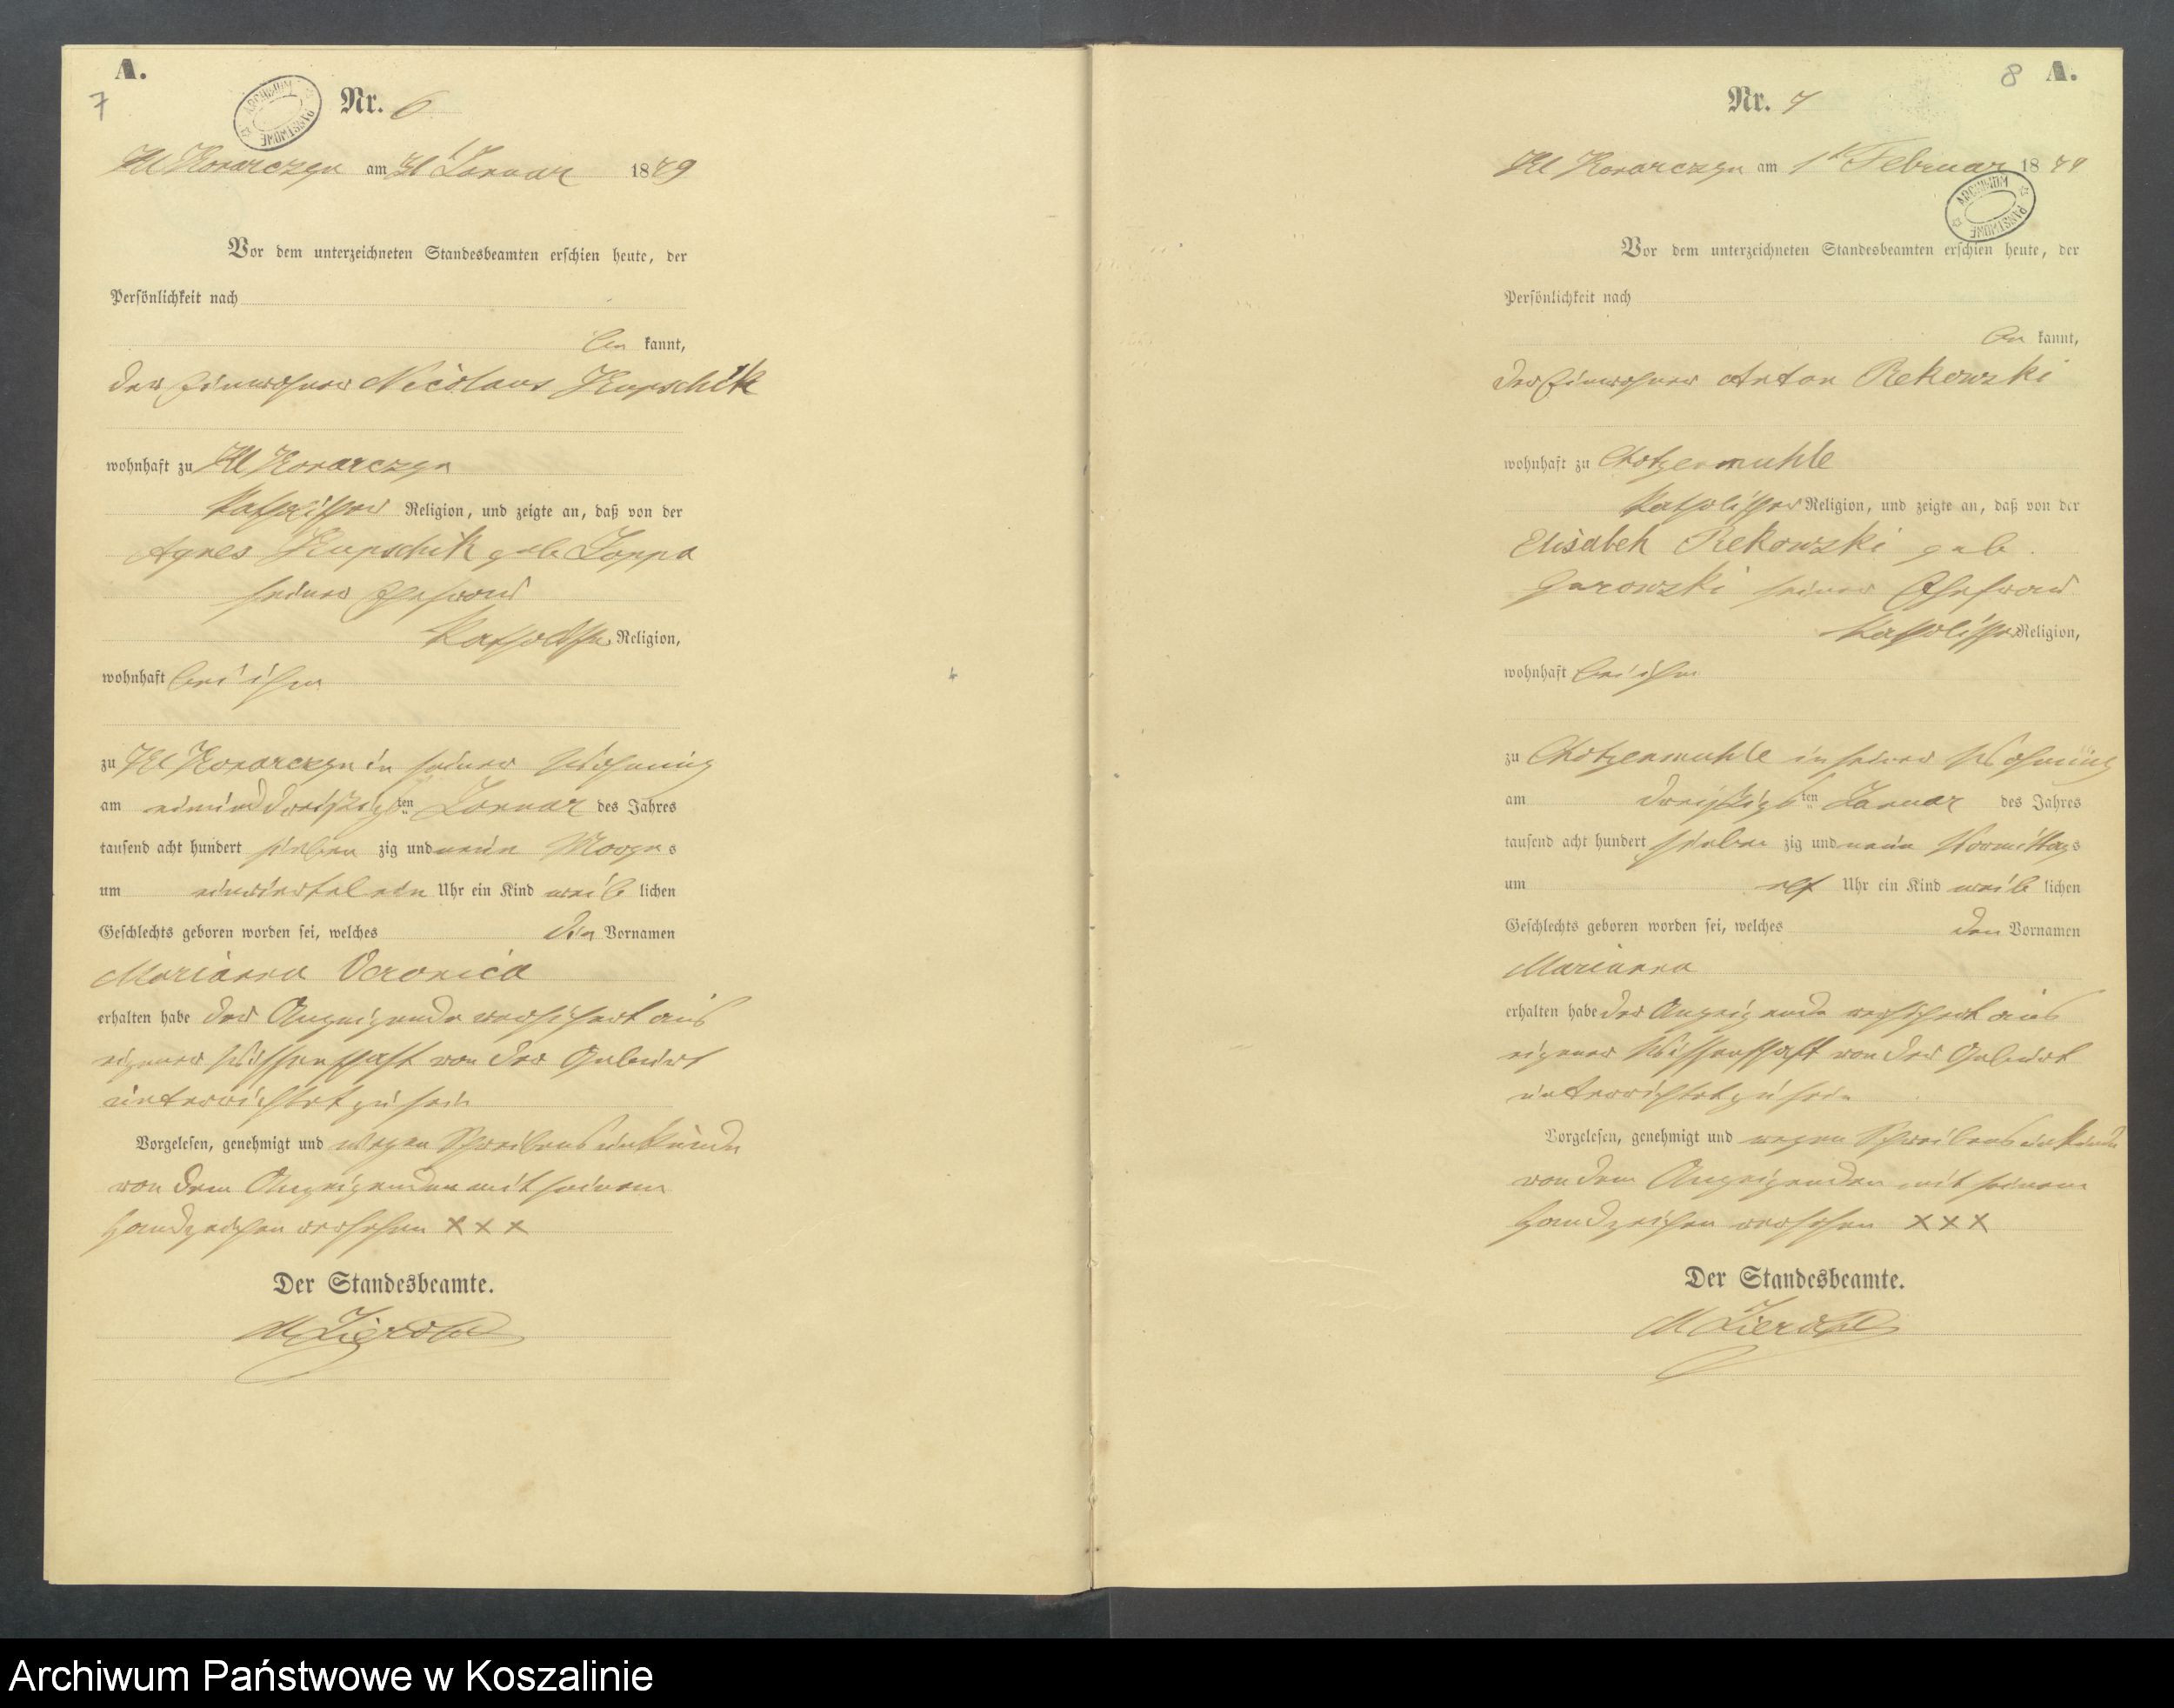 A.
7
ARCHIWUM PAŃSTWOWE
Nr. 6
Kl Konarczyn am 31 Januar 1879
Vor dem unterzeichneten Standesbeamten erschien heute, der
Persönlichkeit nach
be kannt,
der Einwohner Nicolaus Kupschik
wohnhaft zu Kl Konarczyn
katholischer Religion, und zeigte an, daß von der
Agnes Kupschik geb
seiner Ehefrau
katholischer Religion,
wohnhaft bei ihm
zu Kl Konarczyn in seiner Wohnung
am einunddreißigsten Januar des Jahres
tausend acht hundert sieben zig und neun Morgens
um Uhr ein Kind weib lichen
Geschlechts geboren worden sei, welches den Vornamen
Marianna Veronica
erhalten habe der Anzeigende versichert aus
eigener Wissenschaft von der Geburt
unterrichtet zu sein
Vorgelesen, genehmigt und wegen Schreibensunkunde
von dem Anzeigenden mit seinem
Handzeichen versehen XXX
Der Standesbeamte.
8 A.
Nr. 7
Kl Konarczyn am 1t Februar 1879
ARCHIWUM PAŃSTWOWE
Vor dem unterzeichneten Standesbeamten erschien heute, der
Persönlichkeit nach
be kannt,
der Einwohner Anton Rekowski
wohnhaft zu Chotzenmuhle
katholischer Religion, und zeigte an, daß von der
Elisabeh Rekowski geb.
seiner Ehefrau
katholischer Religion,
wohnhaft bei ihm
zu Chotzenmuhle in seiner Wohnung
am dreißigsten Januar des Jahres
tausend acht hundert sieben zig und neun Vormittags
um elf Uhr ein Kind weib lichen
Geschlechts geboren worden sei, welches den Vornamen
Marianna
erhalten habe der Anzeigende versichert aus
eigener Wissenschaft von der Geburt
unterrichtet zu sein
Vorgelesen, genehmigt und wegen Schreibensunkunde
von dem Anzeigenden mit seinem
Handzeichen versehen XXX
Der Standesbeamte.
Archiwum Państwowe w Koszalinie